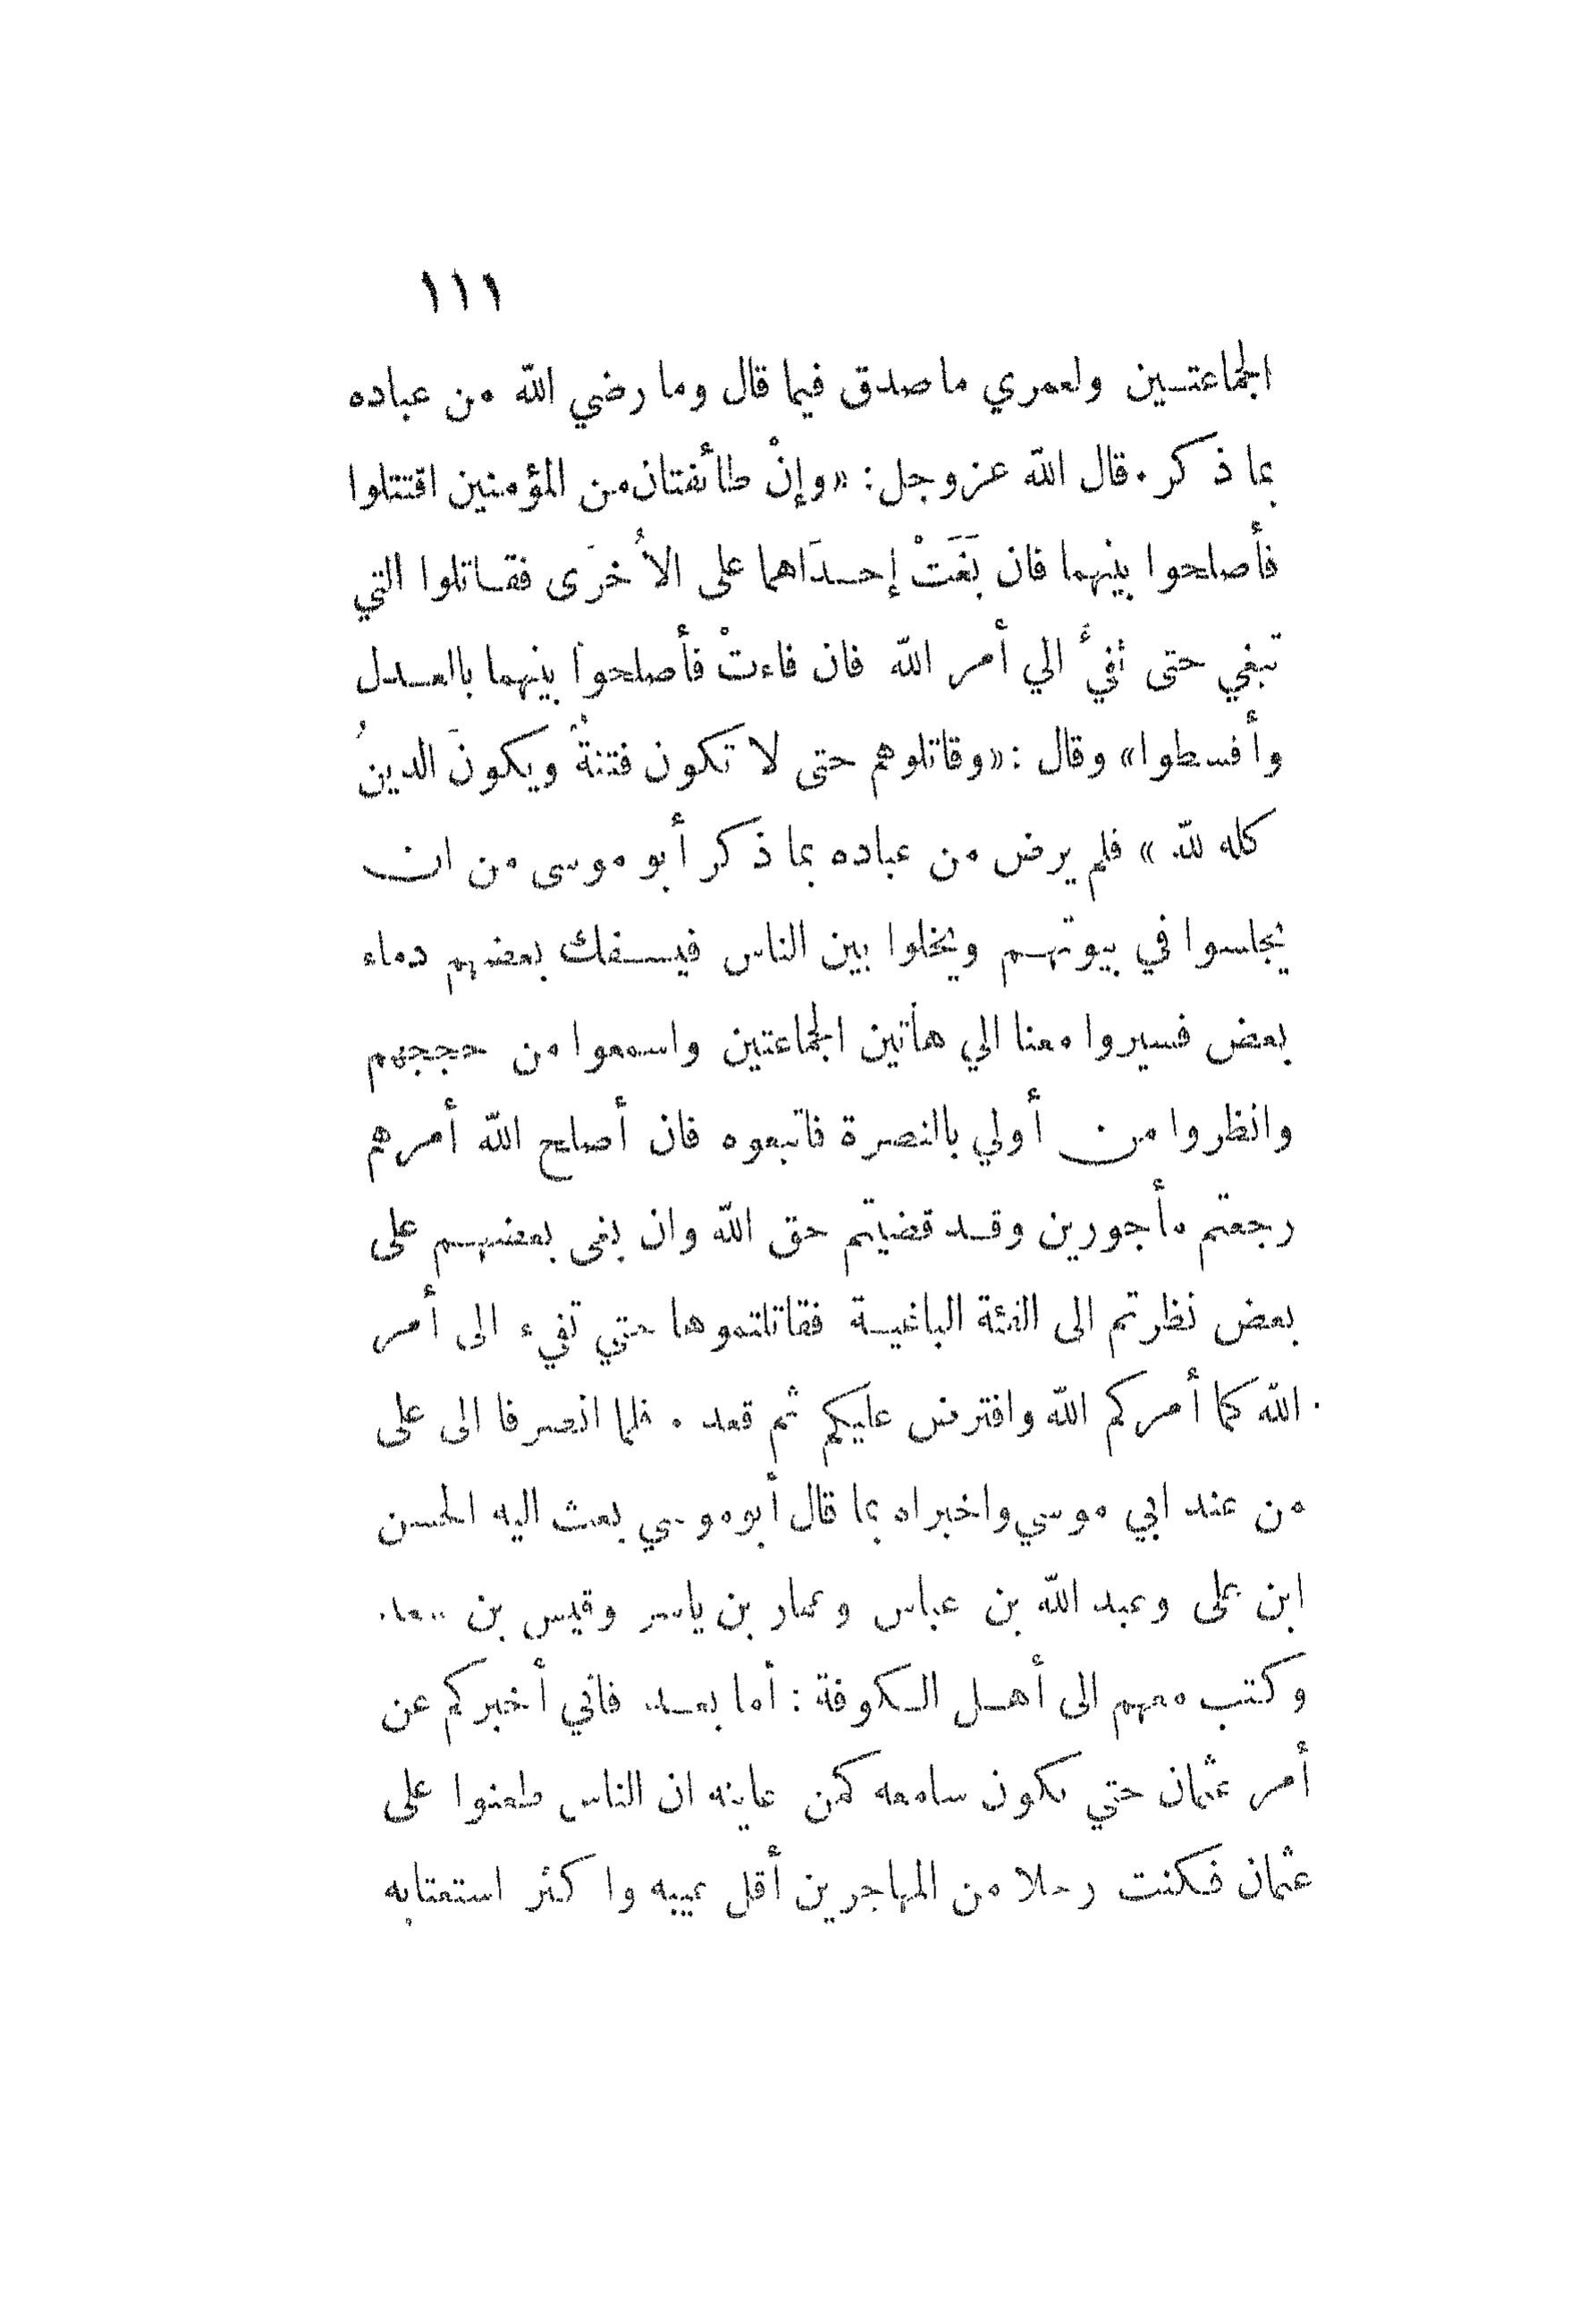 ١١١
الجماعتـين ولعمري ماصدق فيما قال وما رضي الله من عباده
بما ذكر. قال الله عز وجل: «وإنْ طائفتان من المؤمنين اقتتلوا
فأصلحوا بينهما فان بَغَتْ إحـدَاهما على الأُخرَى فقـاتلوا التي
تبغي حتى تفيَُ الي أمر الله فان فاءتْ فأصلحوا بينهما بالعـدل
وأقسطوا» وقال: «وقاتلوهم حتى لا تكون فتنةٌ ويكونَ الدينُ
كله لله» فلم يرض من عباده بما ذكر أبو موسى من ان
يجلسوا في بيوتهـم ويخلوا بين الناس فيـسفك بعضهم دماء
بعض فسيروا معنا الي هاتين الجماعتين واسمعوا من حججهم
وانظروا من أولي بالنصرة فاتبعوه فان أصلح الله أمرهم
رجعتم مأجورين وقـد قضيتم حق الله وان بغى بعضهـم على
بعض نظرتم الى الفئة الباغيـة فقاتلتموها حتي تفيء الى أمر
الله كما أمركم الله وافترض عليكم ثم قعد. فلما انصرفا الى على
من عند ابي موسي واخبراه بما قال أبو موسي بعث اليه الحسن
ابن على وعبد الله بن عباس وعمار بن ياسر وقيس بن
وكتب معهم الى أهـل الـكوفة: أما بعـد فاني أخبركم عن
أمر عثمان حتي يكون سامعه كمن عاينه ان الناس طعنوا على
عثمان فـكنت رجلا من المهاجرين أقل عيبه واكثر استعتابه